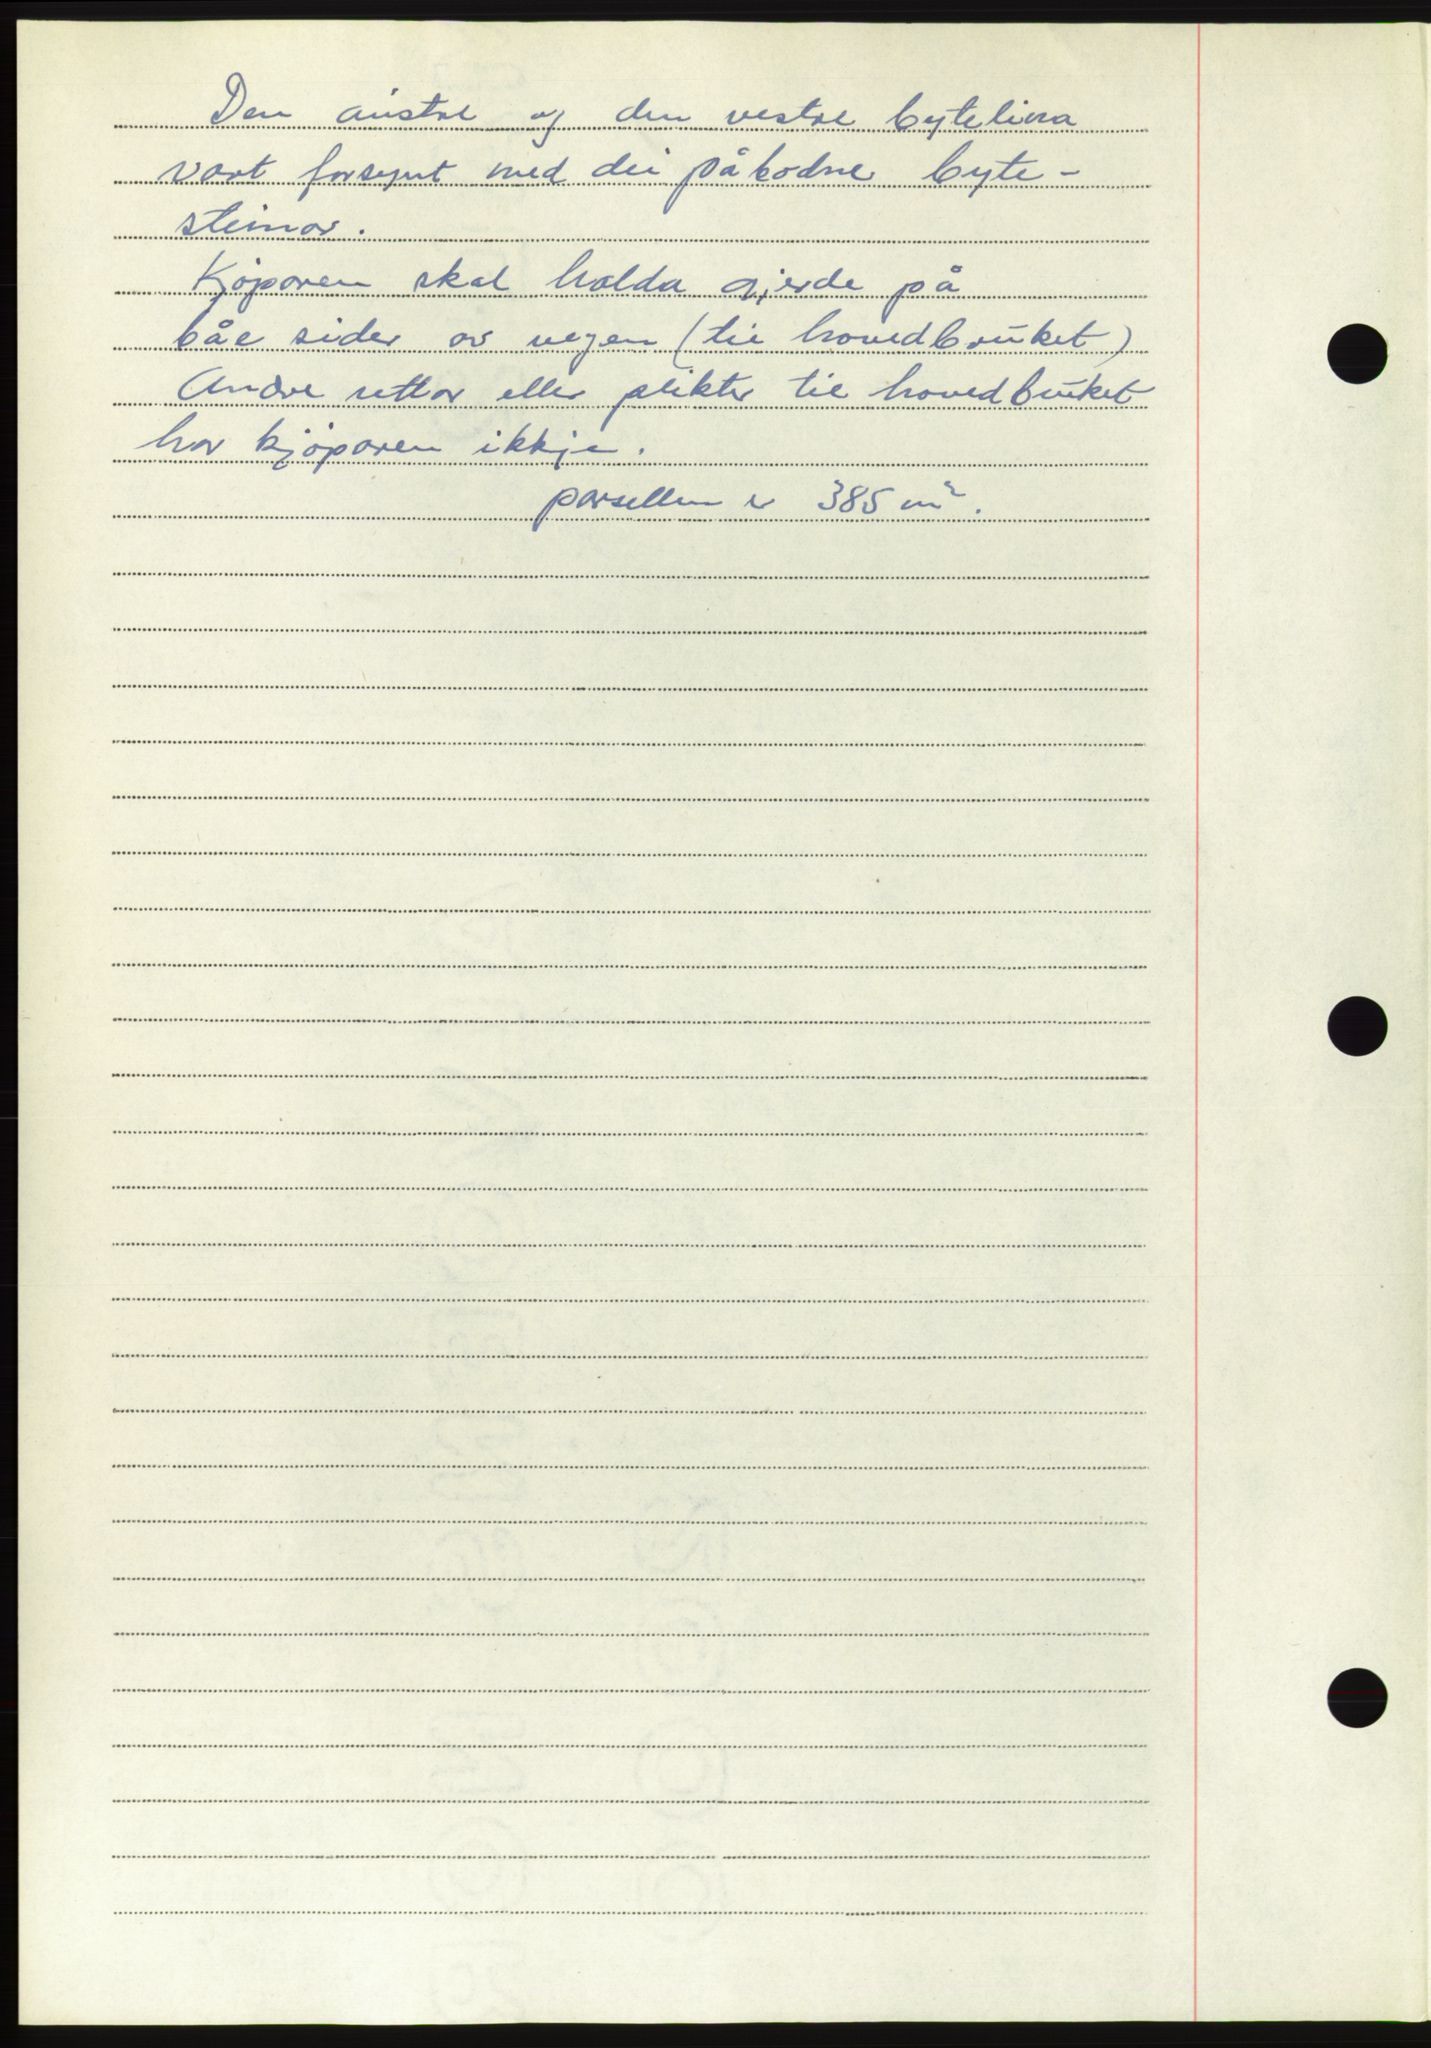 Den austre og den vestre bytelina
vart forsynt med dei påbodne byte-
steinar.
Kjøparen skal halda gjerde på
båe sider av vegen (til hovedbruket)
Andre rettar eller plikter til hovedbruket
har kjøparen ikkje.
parsellen er 385 m².